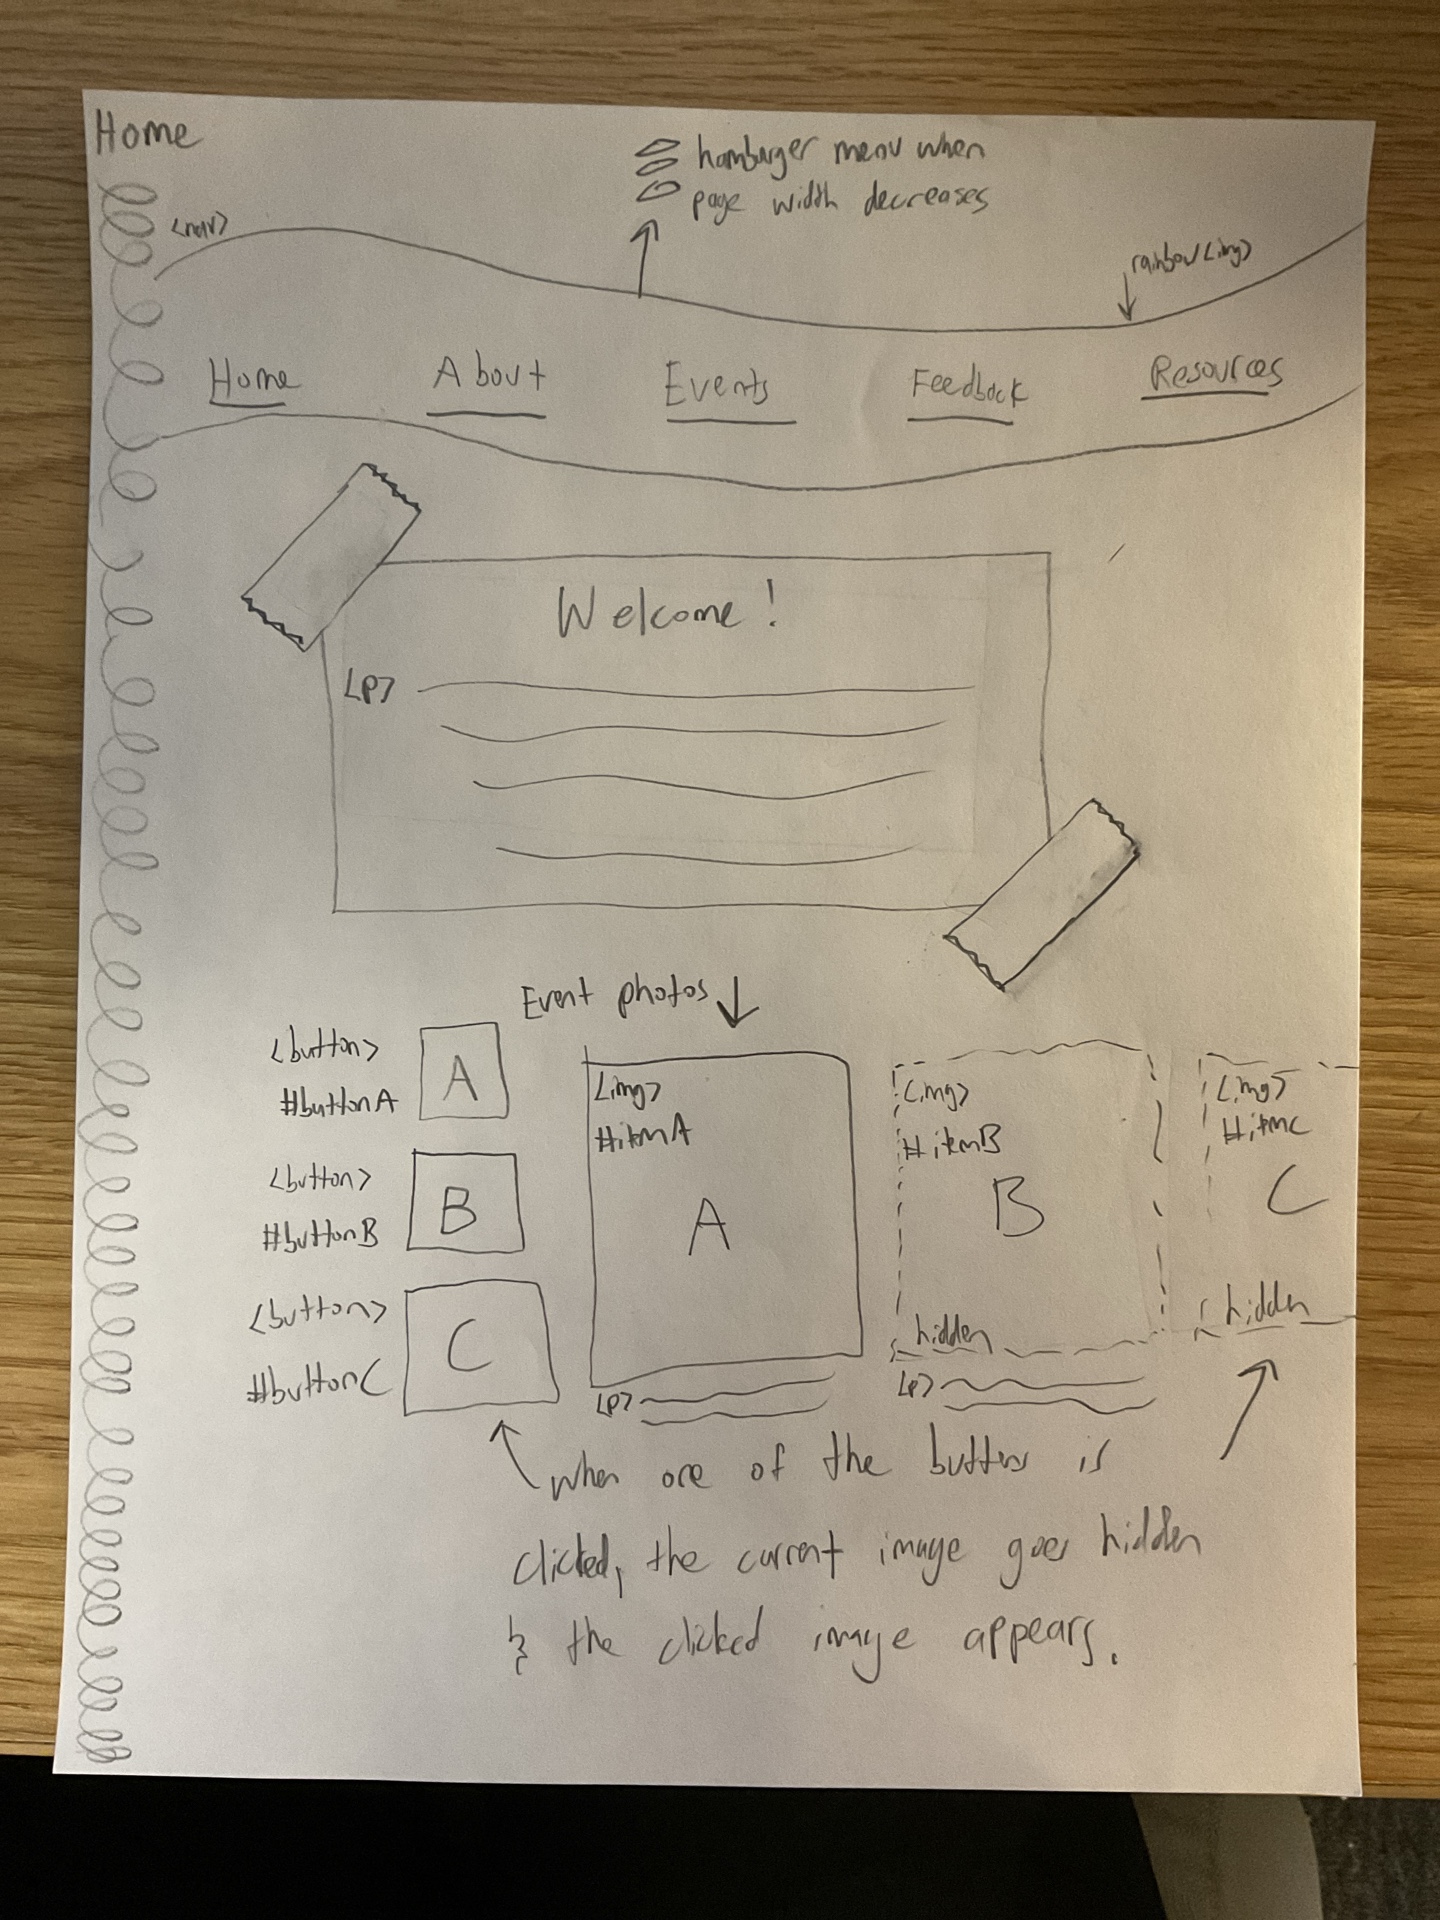 Home
hamburger menu when
page width decreases
<nav>
rainbow <img>
Home About Events Feedback Resources
Welcome!
<p>
Event photos
<button>
#buttonA
A
<button>
#buttonB
B
<button>
#buttonC
C
<img>
#itemA
A
<p>
<img>
#itemB
B
hidden
<p>
<img>
#itemC
C
hidden
when one of the buttons is
clicked, the current image goes hidden
& the clicked image appears.